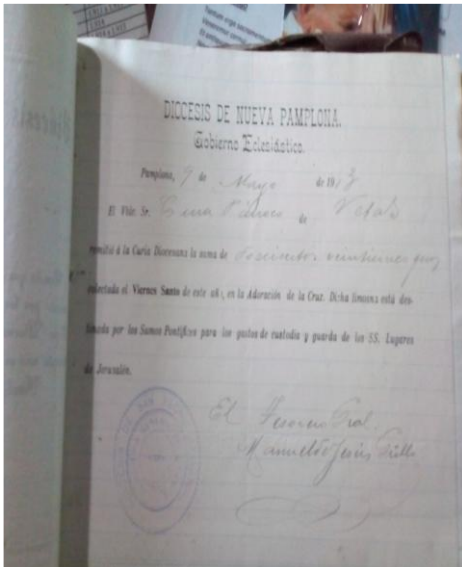 Tantum ergo sacramentum
Veneremur cernui
DIOCESIS DE NUEVA PAMPLONA.
Gobierno Eclesiástico.
Pamplona, 9 de Mayo de 1913
El Vble. Sr. Cura Párroco de Vetas
remitió á la Curia Diocesana la suma de doscientos veintinueve
colectada el Viernes Santo de este año, en la Adoración de la Cruz. Dicha limosna está des-
tinada por los Sumos Pontífices para los gastos de custodia y guarda de los SS. Lugares
de Jerusalén.
El Tesorero Gral.
Manuel de Jesús